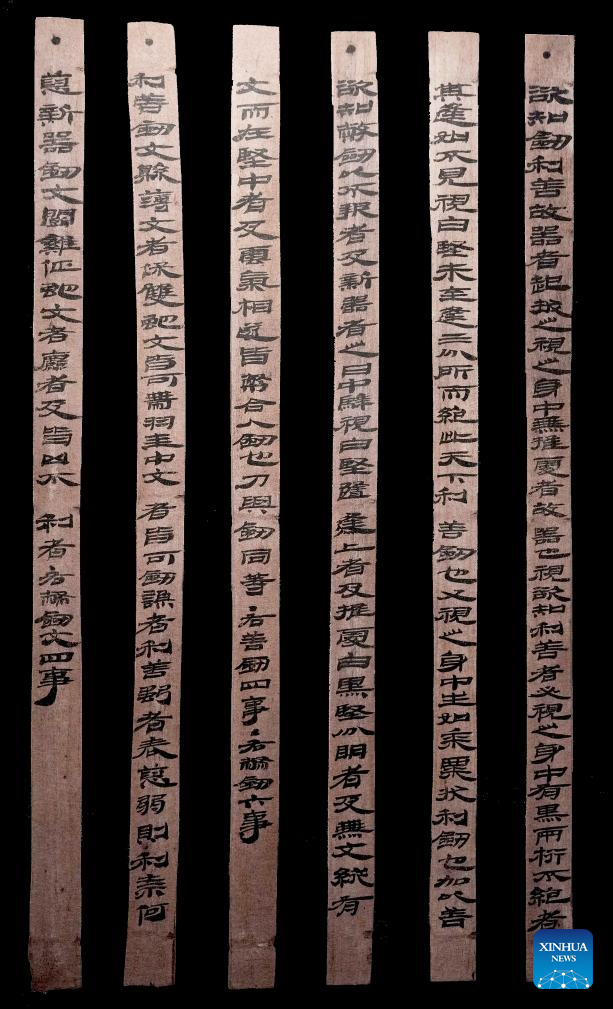 欲知劍利善故器者起拔之視之身中無推處者故器也視欲知利善者必視之身中有黑兩桁不絕者
其逢如不見視白堅未至逢三分所而絕此天下利善劍也又視之身中生如黍粟狀利劍也加以善
欲知幣劍以不報者及新器者之日中騂視白堅隨逢上者及推處白黑堅分明者及無文縱有
文而在堅中者及雲氣相遂皆幣合人劍也刀與劍同等·右善劍四事·右幣劍六事
利善劍文縣薄文者保雙蛇文皆可帶羽圭中文者皆可劍謙者利善強者表恿弱則利奈何
恿新器劍文鬭雞佂蛇文者麤者及皆凶不利者右幣劍文四事
XINHUA
NEWS